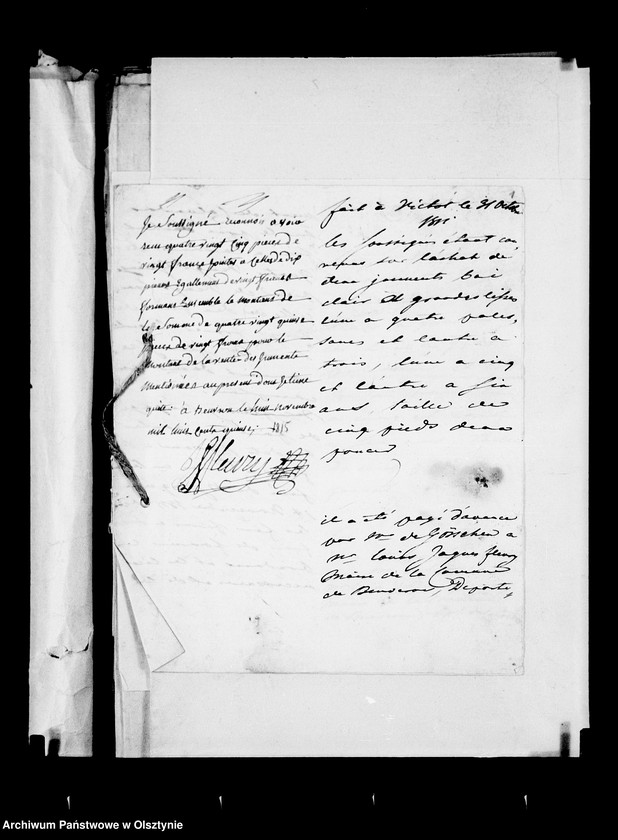 Je Soussigné reconnois avoir
recu quatre vingt Cinq pieces de
vingt francs jointes a Celles de dix
pieces Egallement de vingt francs
formant Ensemble le montant de
la Somme de quatre vingt quinse
pieces de vingt francs pour le
montant de la vente des Juments
mentionées au present dont je tiens
quitte à le huit novembre
mil huit Cents quinse 1815
Fleury
fait à le 31 Octbre
1815
les soussignés étant con
venus sur l'achat de
deux juments bai
clair et grandes lisses
l'une a quatre bales,
sanes et l'autre a
trois, l'une a cinq
et l'autre a six
ans, taille de
cinq pieds deux
pouces
il a été payé d'avance
par Mr de a
Mr Louis Jaques fleury
Maire de la Comune
de Departe,
Archiwum Państwowe w Olsztynie